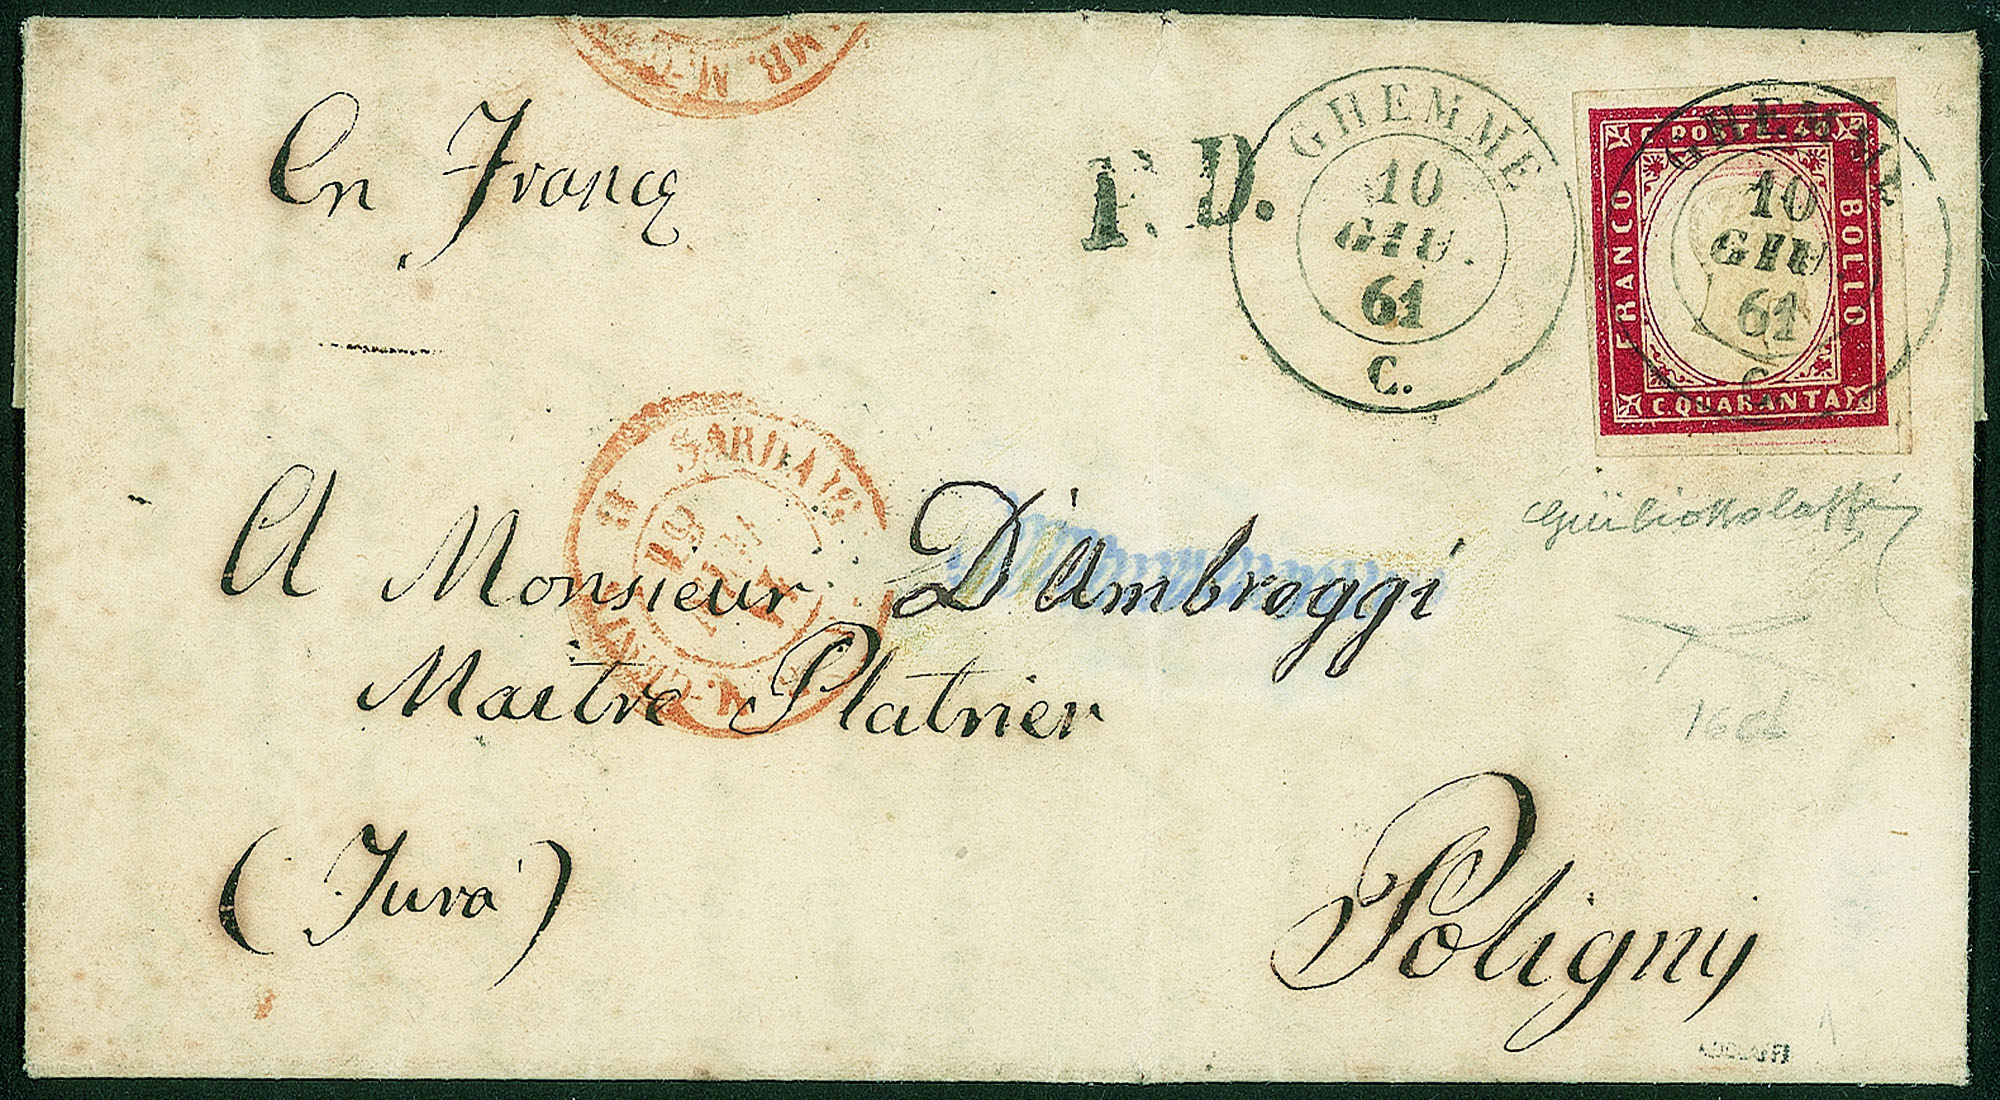 En France
P.D.
GHEMME
10
GIU.
61
C.
C. POSTE. 40
FRANCO
BOLLO
C. QUARANTA
GHEMME
10
GIU.
61
C.
SARDAIG.
A Monsieur D'Ambroggi
Maitre Platrier
(Jura)
Poligny
16cb